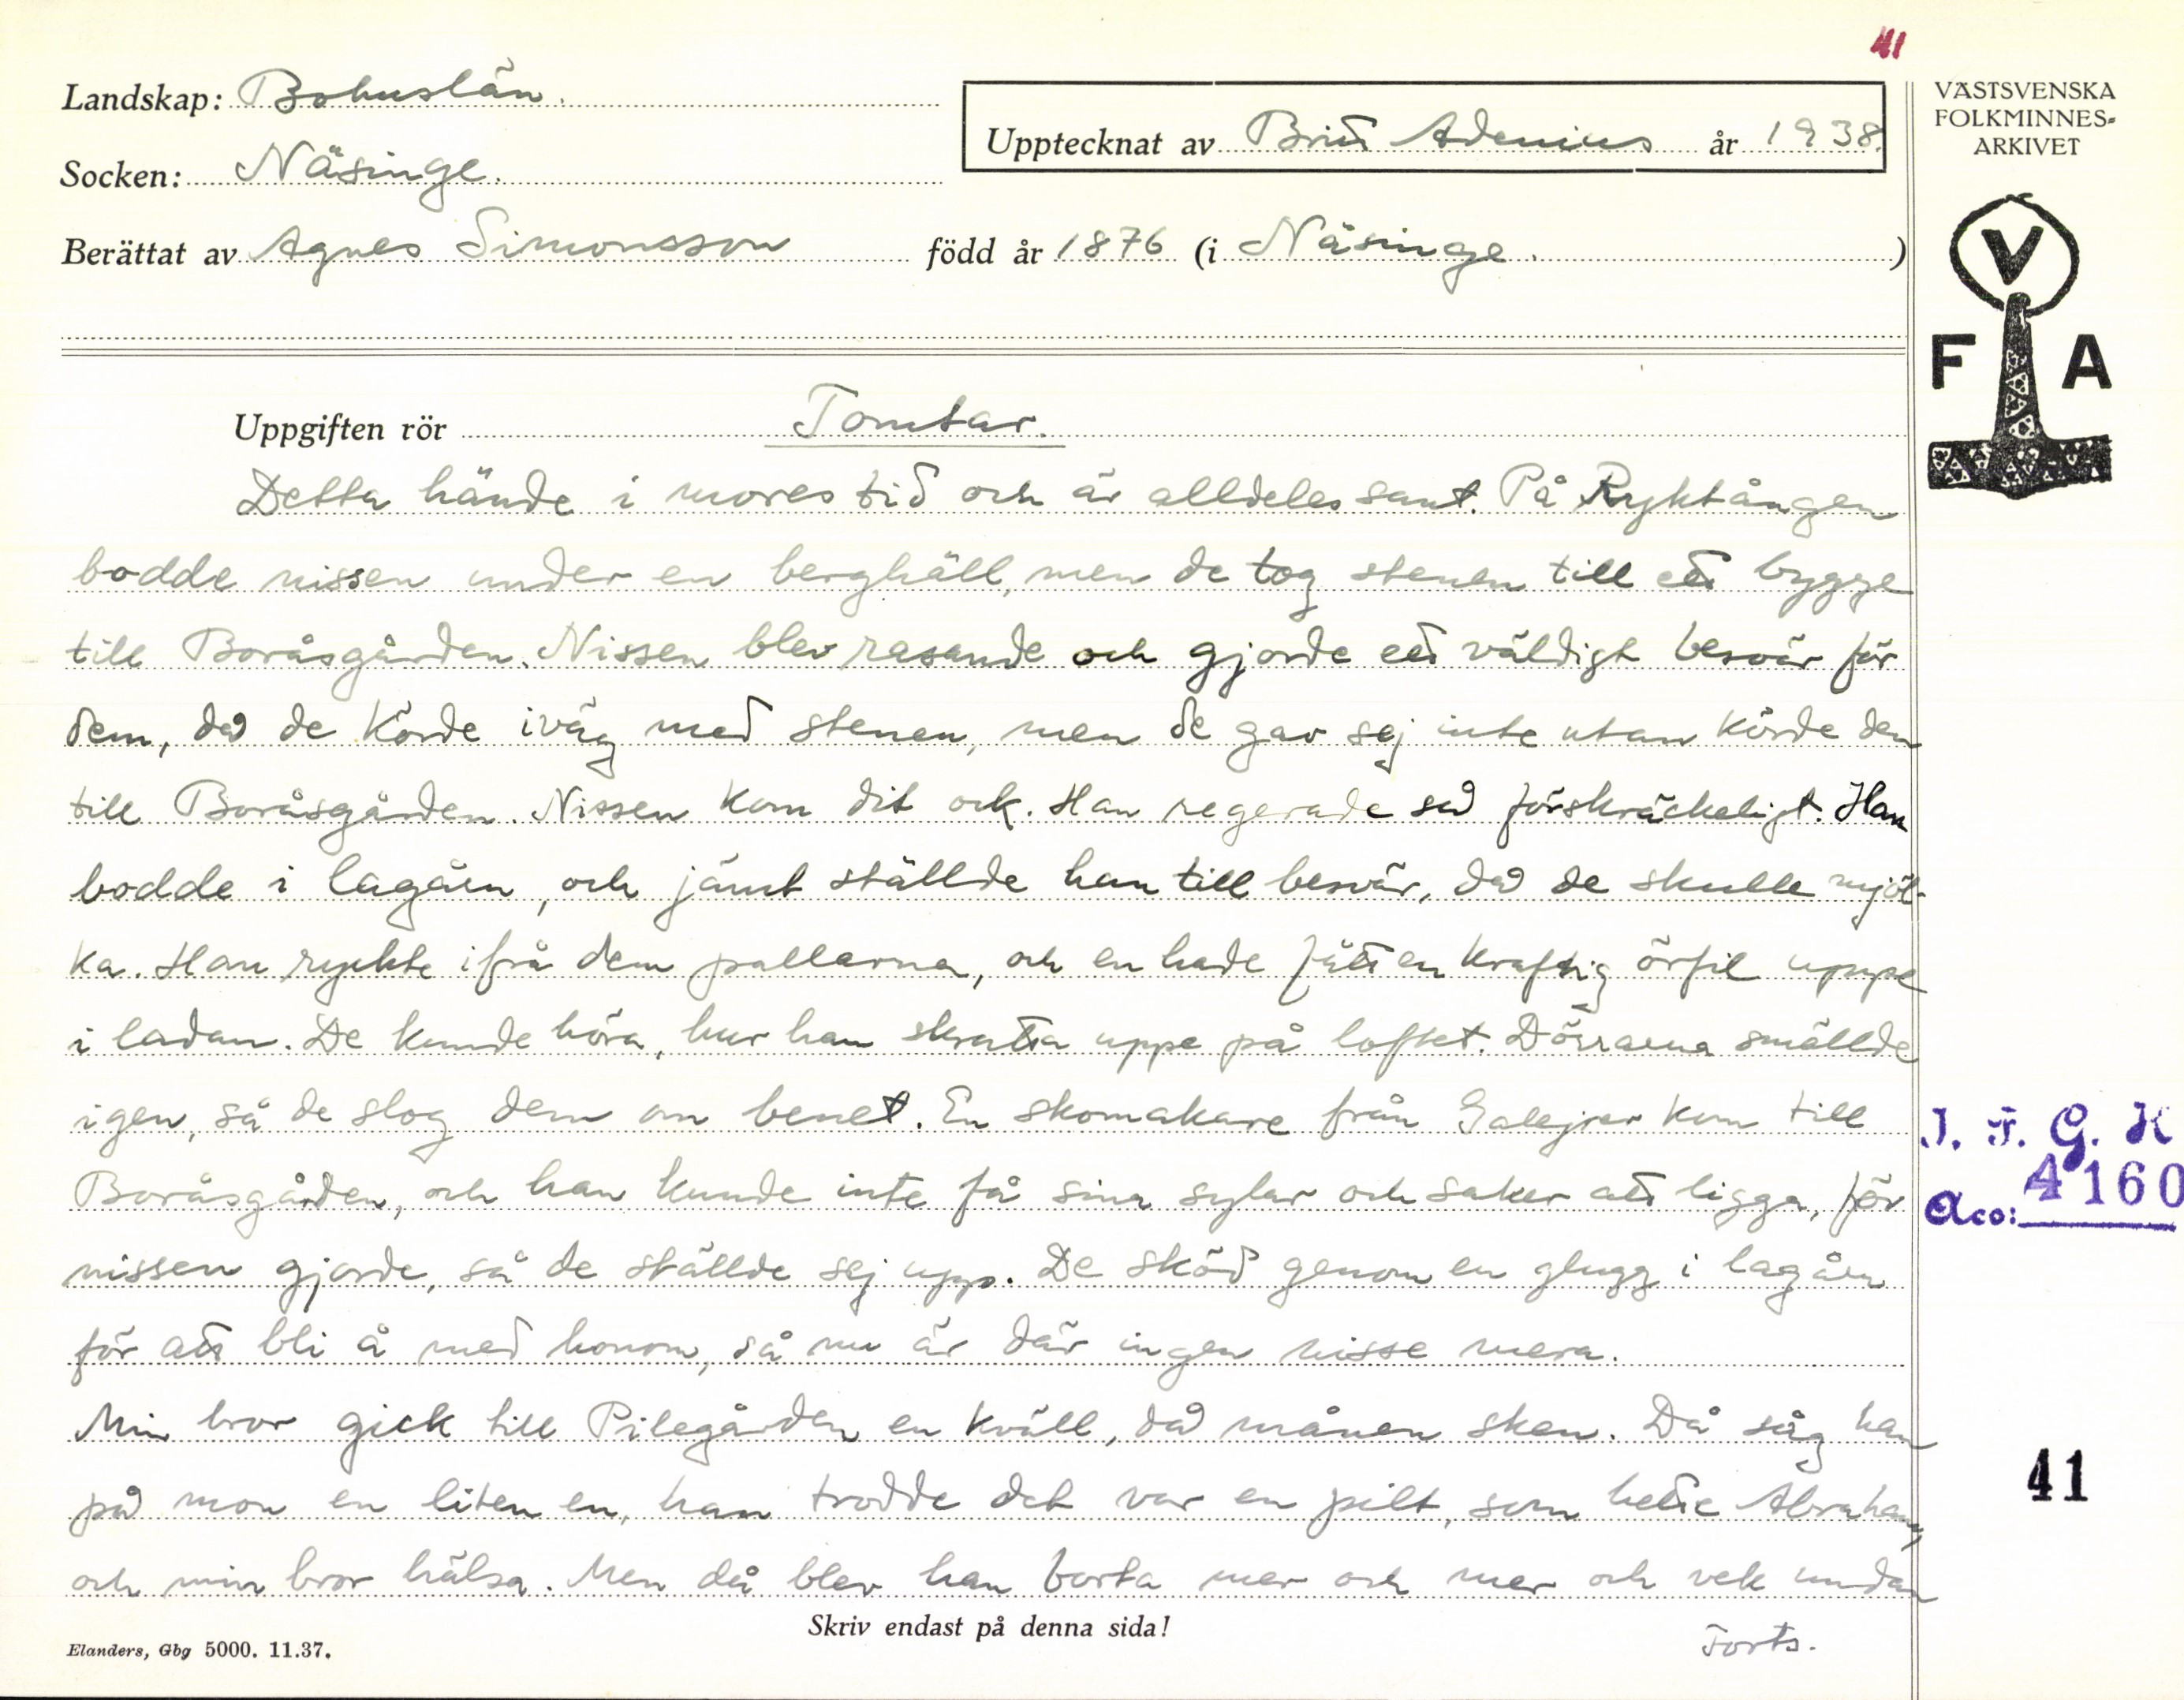 41
Landskap: Bohuslän.
Upptecknat av Britt Adenius år 1938.
Socken: Näsinge.
Berättat av Agnes Simonsson född år 1876 (i Näsinge.)
VÄSTSVENSKA
FOLKMINNES-
ARKIVET
V
F A
Uppgiften rör Tomtar.
Detta hände i mores tid och är alldeles sant. På Ryktången
bodde nissen under en berghäll, men de tog stenen till ett bygge
till Boråsgården. Nissen blev rasande och gjorde ett väldigt besvär för
dem, då de körde iväg med stenen, men de gav sej inte utan körde den
till Boråsgården. Nissen kom dit ock. Han regerade så förskräckeligt. Han
bodde i lagårn, och jämt ställde han till besvär, då de skulle mjöl-
ka. Han ryckte ifrå dem pallarna, och en hade fått en kraftig örfil uppe
i ladan. De kunde höra, hur han skratta uppe på loftet. Dörrarna smällde
igen, så de slog dem om benet. En skomakare från kom till
Boråsgården, och han kunde inte få sina sylar och saker att ligga, för
nissen gjorde, så de ställde sej upp. De sköd genom en glugg i lagårn
för att bli å med honom, så nu är där ingen nisse mera.
Min bror gick till Pilegården en kväll, då månen sken. Då såg han
på mon en liten en, han trodde det var en pilt, som hette Abraham,
och min bror hälsa. Men då blev han borta mer och mer och vek undan
Forts.
Skriv endast på denna sida!
Elanders, Gbg 5000. 11.37.
I. F. G. H
Acc: 4160
41